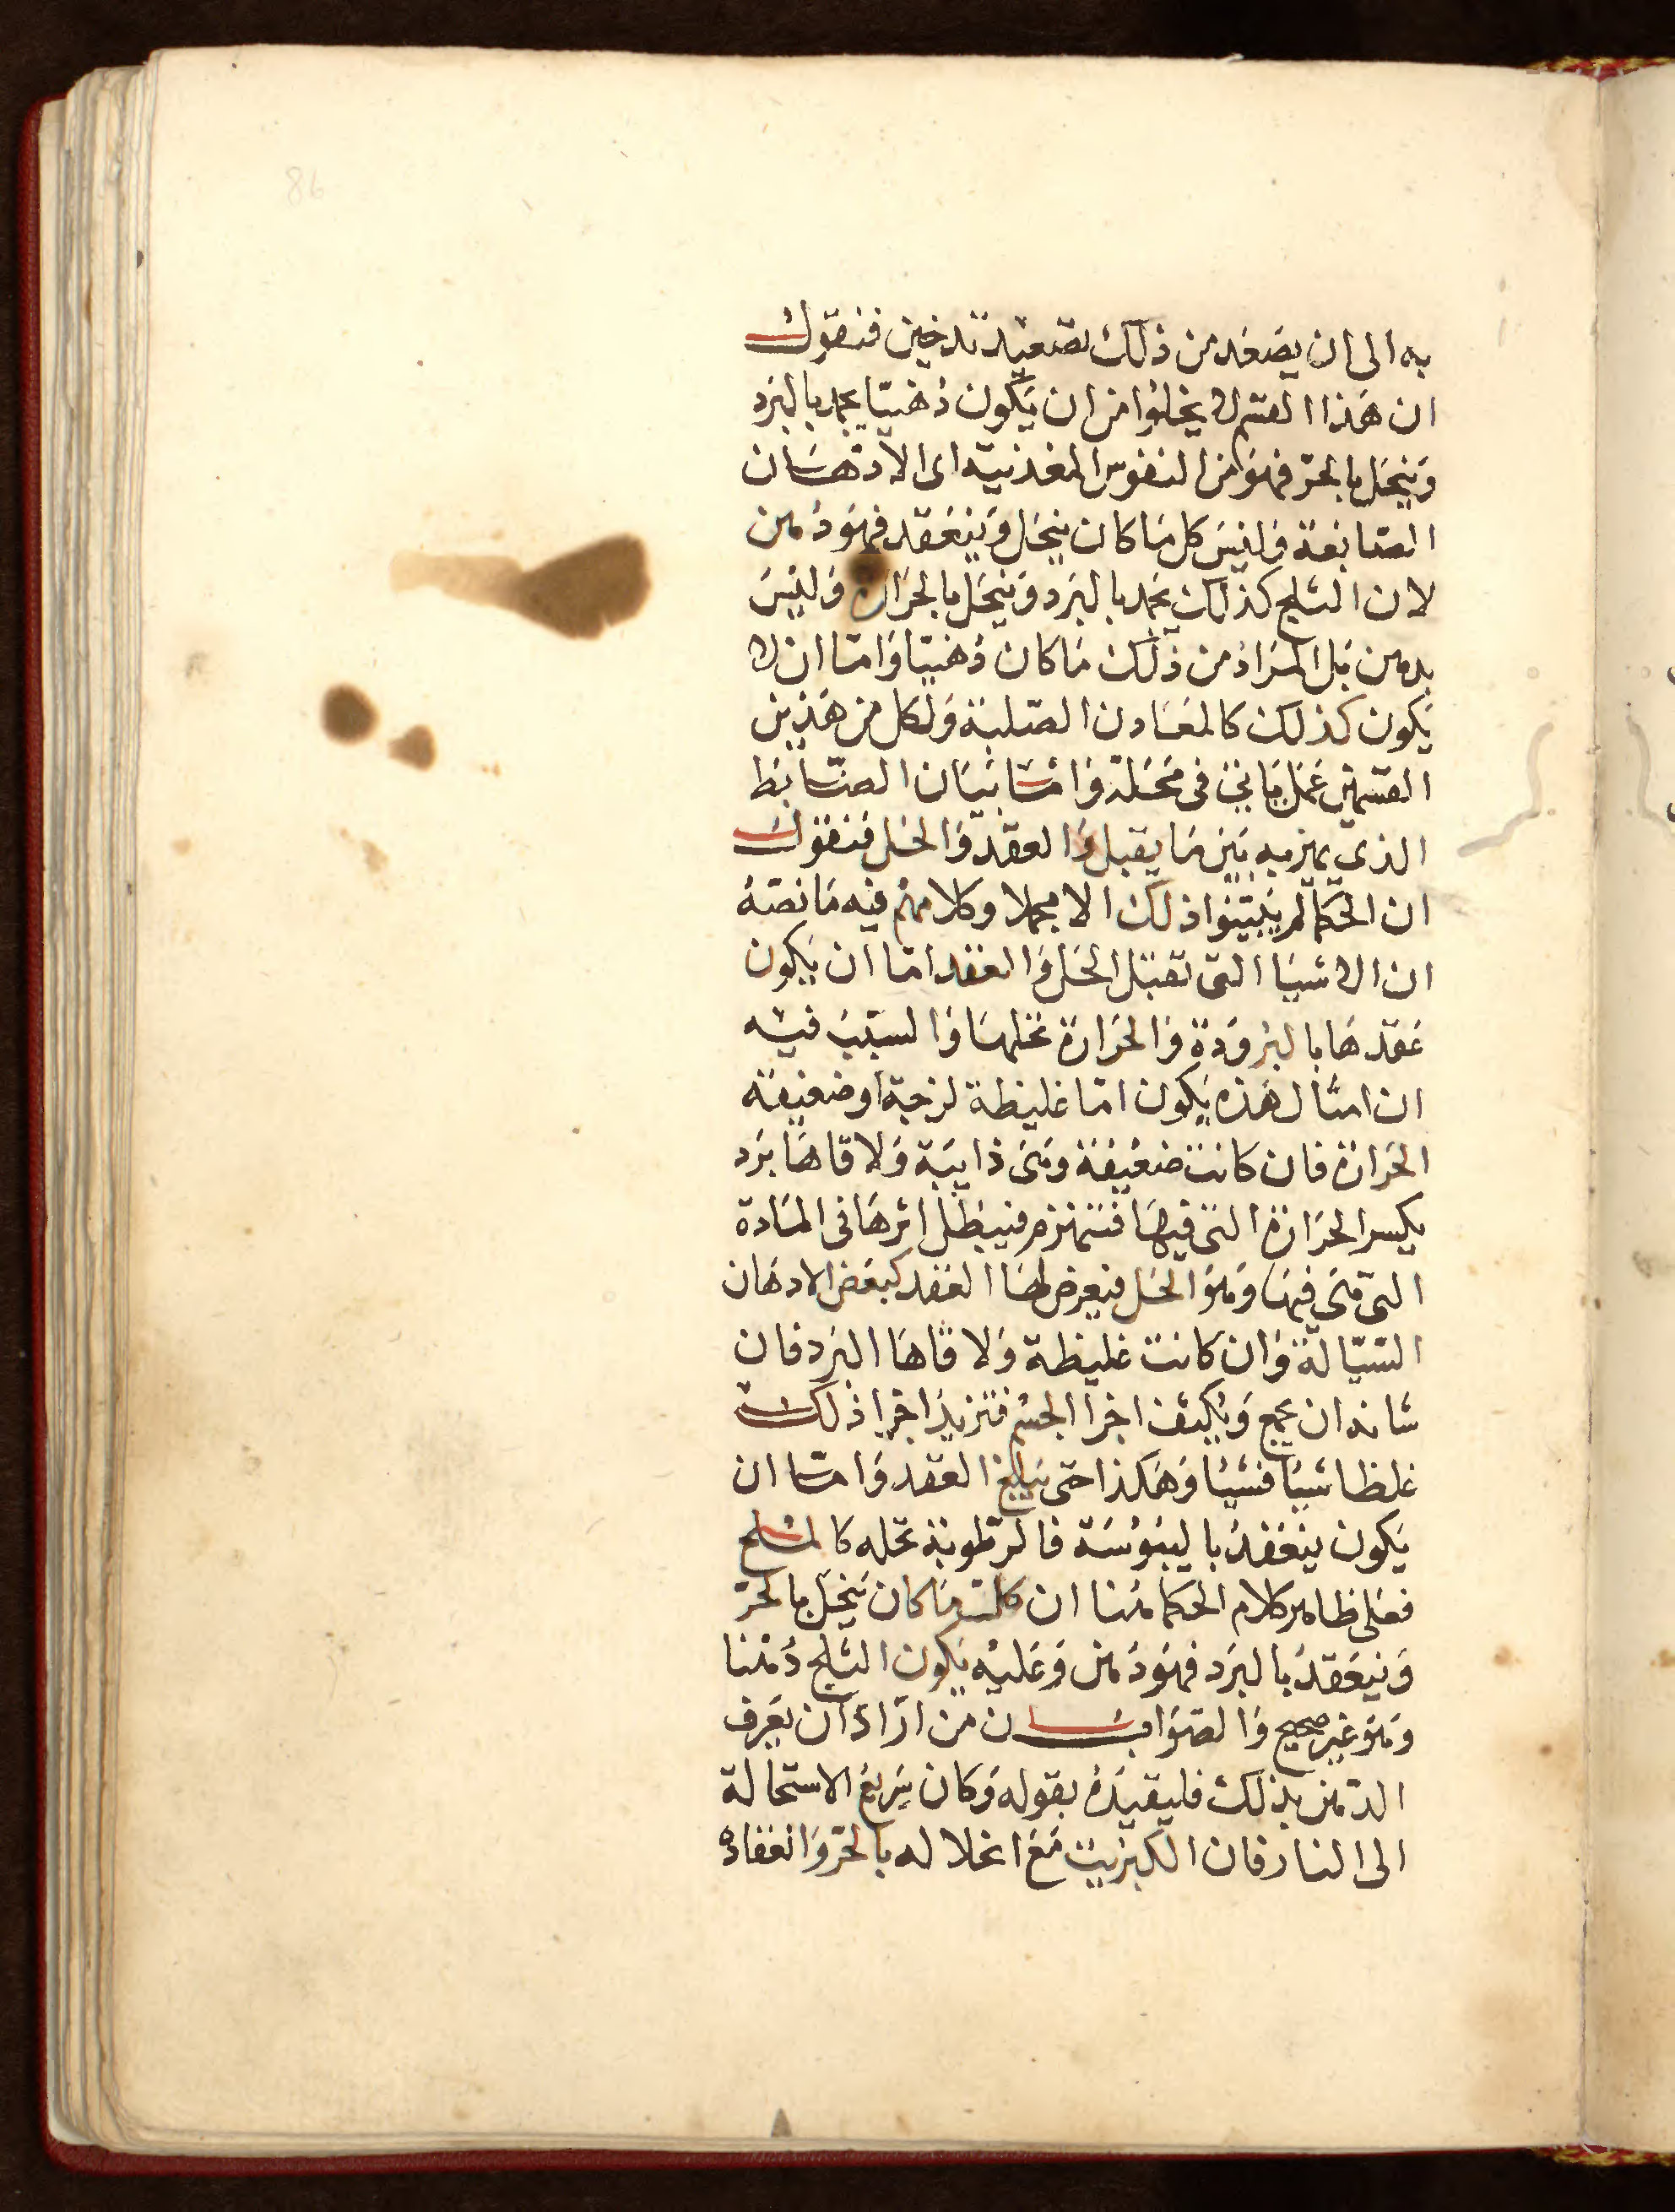 86
به الى ان يصَعَد من ذلك تصَعيد تدخين فنقول
ان هَذا القسم لا يخلوا من ان يَكون دُهنيّا يجمد بالبَرد
وَينحَل بالحرّ فهوَ من النفوس المعَدنيّه اى الادهَان
الصّابغة وَليسَ كل مَا كان ينحَل وَينعَقد فهوَ دُهن
لان الثلج كذلك يجمد بالبَرد وَينحَل بالحرَارة وَليسَ
بدهن بَل المرَاد من ذلك مَا كان دُهنيّا وَامّا ان لا
يَكون كذلك كالمعَادن الصّلبة وَلكل من هَذين
القسمَين عَمَل يَاتى فى محَله وَامّا بيَان الضّابط
الذي يميز به بَين مَا يقبل العقد وَالحَل فنقول
ان الحكما لم يُبيّنوا ذلك الا مجملا وكلامهُم فيه مَا نصّهُ
ان الاشيَا التى تقبَل الحَل وَالعَقد امّا ان يَكون
عَقدهَا بالبرُودَة وَالحَرارَة تحَلهَا وَالسبَب فيه
ان امثال هَذه يَكون امّا غليظة لزجَة او ضعَيفة
الحَرارَة فان كانت ضعَيفة وَهىَ ذايبَة وَلاقاهَا بَرد
يكسر الحَرَارة التى فيهَا فتنهزم فيبطَل اثرهَا فى المَادة
التى هىَ فيهَا وَهوَ الحَل فيعرض لهَا العَقد كبَعَض الادهَان
السّيّالة وَان كانت غليظة وَلاقاهَا البَرد فان
شانه ان يجمع وَيُكثف اجزا الجسْم فتزيد اجزا ذلك
غلظا شيًا فشيًا وَهكذا حتى يَبلغ العَقد وَامّا ان
يَكون ينعَقدُ باليبُوسَة فالرّطوبَة تحله كالملح
فعَلى ظاهر كلام الحكما هُنا ان كل مَا كان يَنحَل بالحرّ
وَينعَقدُ بالبرَد فهوَ دُهن وَعَليه يَكون الثلج دُهنا
وَهوَ غير صحيح وَالصوَاب ان من ارَادَ ان يعَرف
الدّهن بذلك فليقيدهُ بقوله وَكان سَريعَ الاستحالة
الى النار فان الكبريت مَعَ انحلاله بالحرّ وَانعَقاده